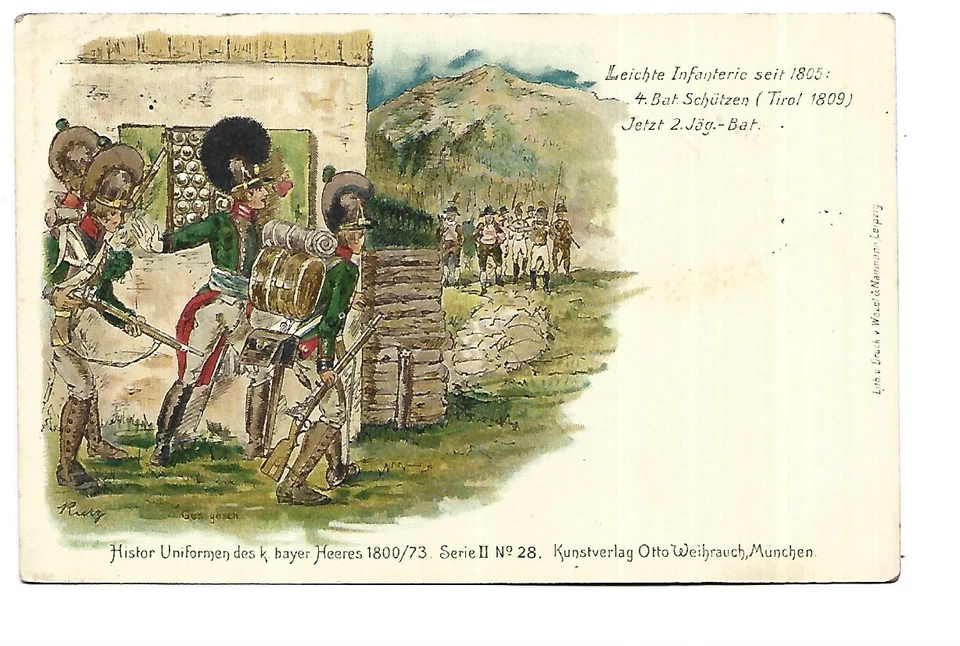 Leichte Infanterie seit 1805:
4. Bat. Schützen (Tirol 1809)
Jetzt 2. Jäg.-Bat.
Lith. u. Druck v. Wezel & Naumann, Leipzig
Ges. gesch.
Histor Uniformen des k. bayer Heeres 1800/73. Serie II Nº 28. Kunstverlag Otto Weihrauch, München.